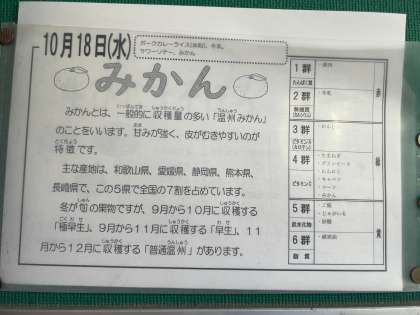 10月18日(水)
ポークカレーライス(麦飯)、牛乳、
サワーソテー、みかん
みかん
みかんとは、一般的に収穫量の多い「温州みかん」
のことをいいます。甘みが強く、皮がむきやすいのが
特徴です。
主な産地は、和歌山県、愛媛県、静岡県、熊本県、
長崎県で、この5県で全国の7割を占めています。
冬が旬の果物ですが、9月から10月に収穫する
「極早生」、9月から11月に収穫する「早生」、11
月から12月に収穫する「普通温州」があります。
1群
たんぱく質
・豚肉
赤
2群
無機質
(カルシウム)
・牛乳
3群
ビタミンA
(カロテン)
・にんじん
緑
4群
ビタミンC
・たまねぎ
・グリンピース
・にんにく
・キャベツ
・コーン
・みかん
5群
炭水化物
・ご飯
・じゃがいも
・砂糖
黄
6群
脂質